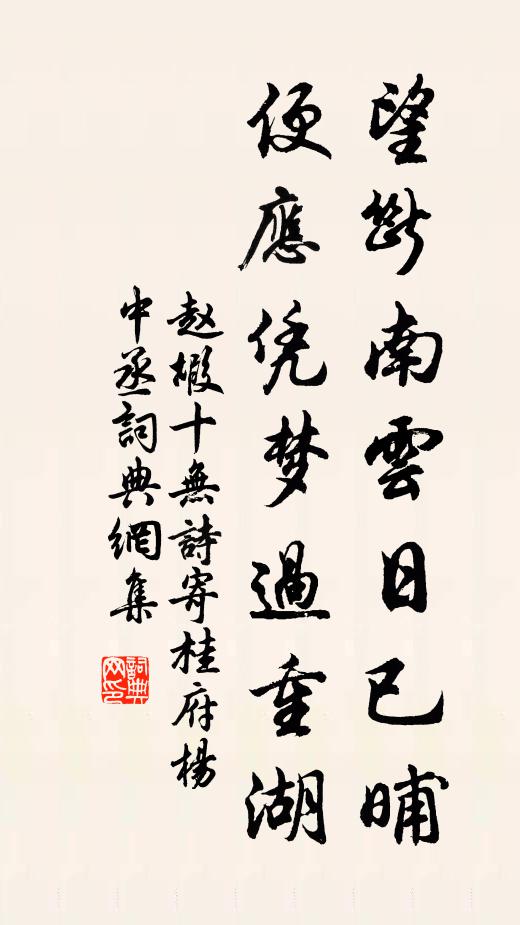 望断南雲日已晡
便應凭梦過重湖
赵嘏十無詩寄桂府楊
中丞詞典網集
詞典网印